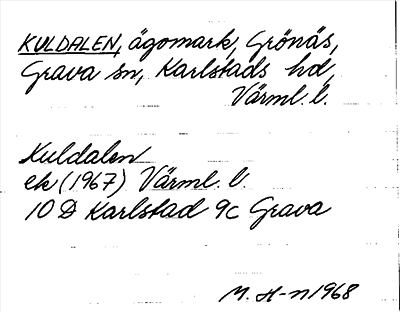 KULDALEN, ägomark, Grönäs,
Grava sn, Karlstads hd,
Värml. l.
Kuldalen
ek (1967) Värml. l.
10 D Karlstad 9c Grava
M. H-n 1968